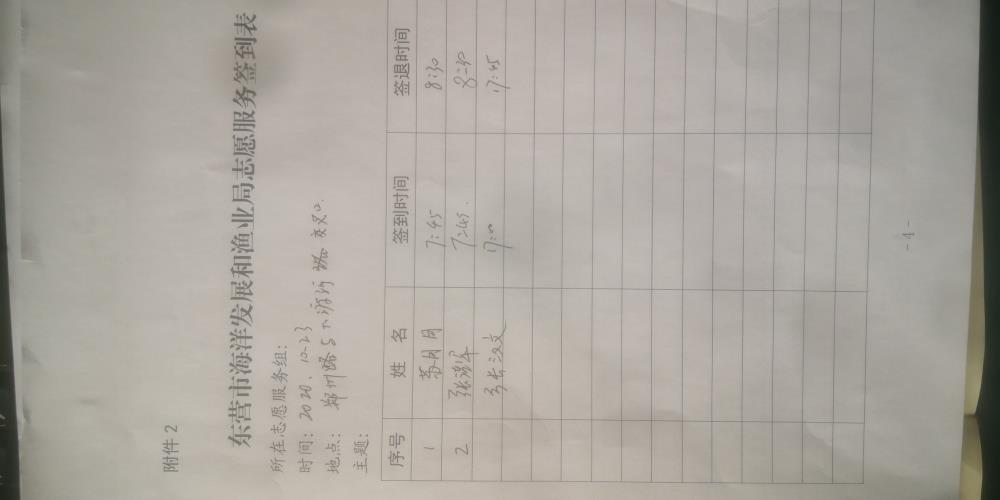 附件2
东营市海洋发展和渔业局志愿服务签到表
所在志愿服务组:
时间: 2020.10.23
地点: 郑州路与下游河 交叉口
主题:
序号 姓 名 签到时间 签退时间
1 苏月月 7:45 8:30
2 张 7:45. 8:30
张汉文 17:00 17:45
-4-